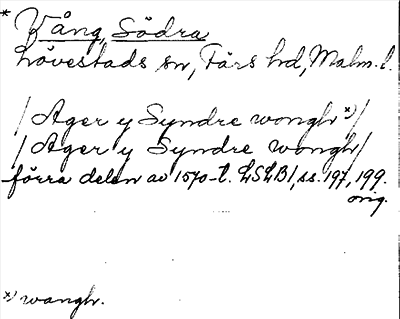 * Vång, Södra
Lövestads sn, Färs hd, Malm. l.
/ Ager y Syndre wongh x)/
/ Ager y Syndre wongh/
förra delen av 1570-t. LSLB1, ss. 197, 199.
orig.
x) wangh.